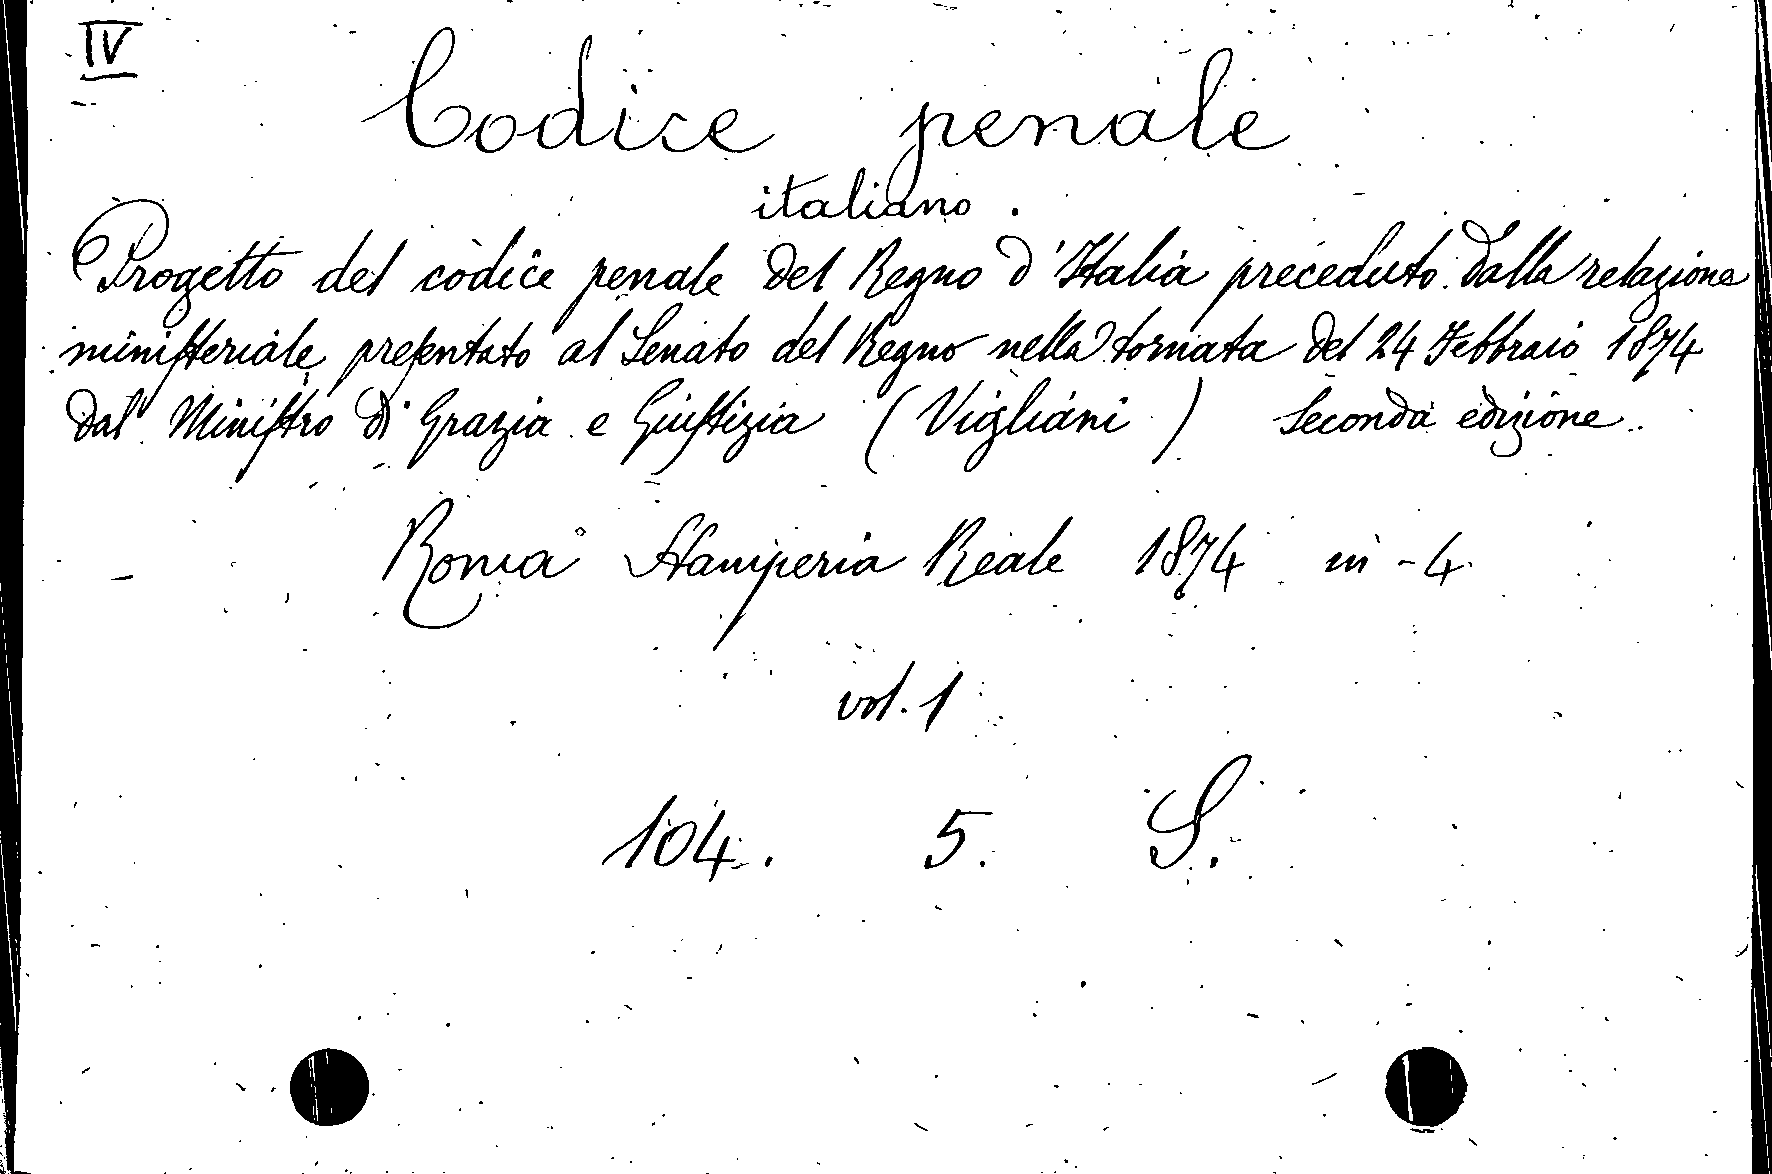 IV
Codice penale
italiano.
Progetto del codice penale del Regno d'Italia preceduto dalla relazione
ministeriale presentato al Senato del Regno nella tornata del 24 Febbraio 1874
dal Ministro di Grazia e Giustizia (Vigliani) Seconda edizione.
Roma Stamperia Reale 1874 in-4
vol. 1
104. 5. S.